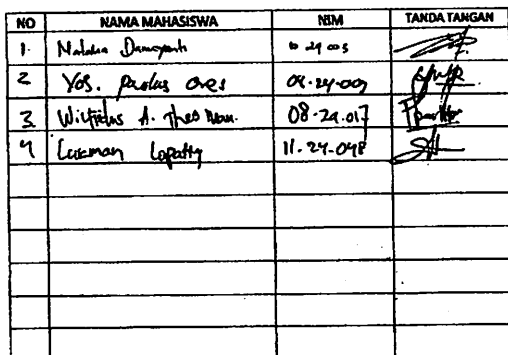 NO NAMA MAHASISWA NIM TANDA TANGAN
1. Natalia Damayanti
2 Yos. Paulus Ores 09-24-009
3 Wilfridus A. Theo 08-24.017
4 Lukman Lopatty 11-24-048